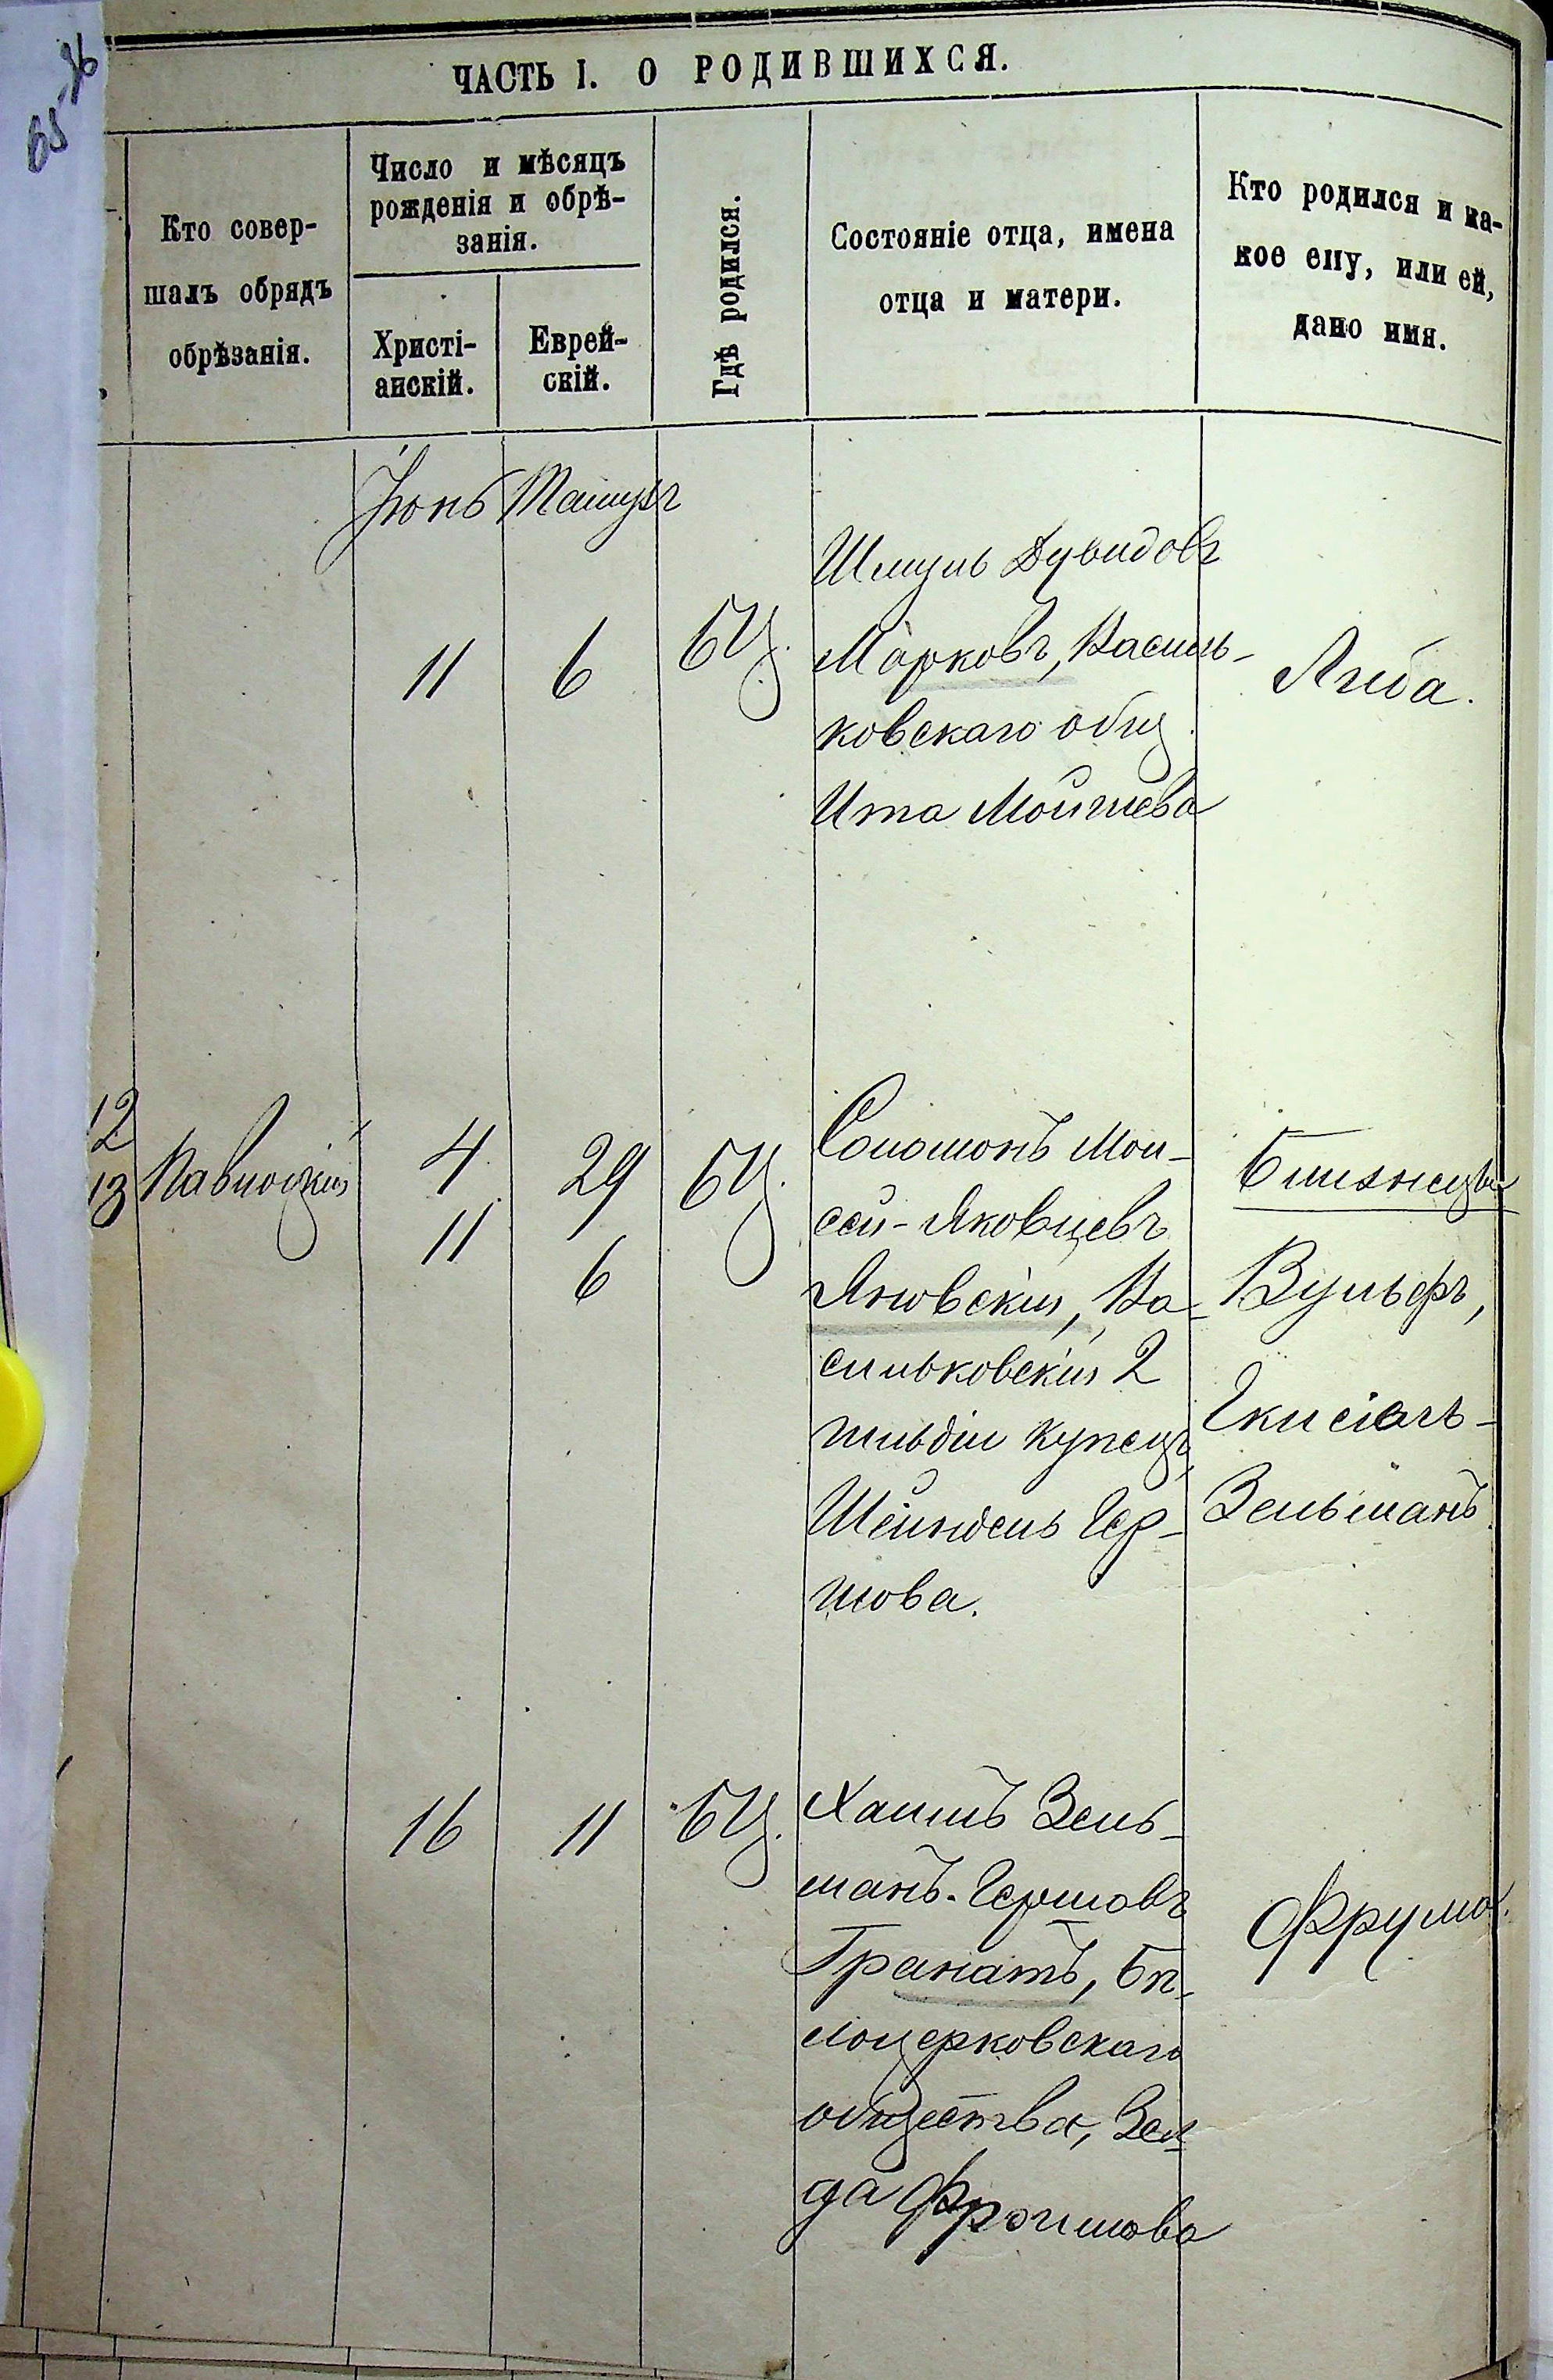 65-96
ЧАСТЬ I. О РОДИВШИХСЯ.
Кто совер-
шалъ обрядъ
обрѣзанія.
Число и мѣсяцъ
рожденія и обрѣ-
занія.
Христі-
анскій.
Еврей-
скій.
Гдѣ родился.
Состояніе отца, имена
отца и матери.
Кто родился и ка-
кое ему, или ей,
дано имя.
Іюнь Тамузъ
11 6 БЦ.
Шмуль Дувидовъ
Марковъ, Василь-
ковскаго общ.
Ита Мошиева
Либа.
12
13
4 29 БЦ.
11 6
Соломонъ Мои-
сей-Яковлевъ
Яновскій, Ва-
сильковскій 2
гильдіи купецъ,
Шейндель Гер-
шова.
Близнецы
Вульфъ,
Екисіель-
Зельманъ.
16 11 БЦ.
Хаимъ Зель-
манъ-Гершовъ
Гранатъ, Бѣ-
лоцерковскаго
общества, Зел-
да Фроимова
Фрума.